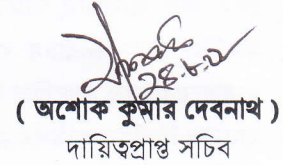 ( অশোক কুমার দেবনাথ )
দায়িত্বপ্রাপ্ত সচিব